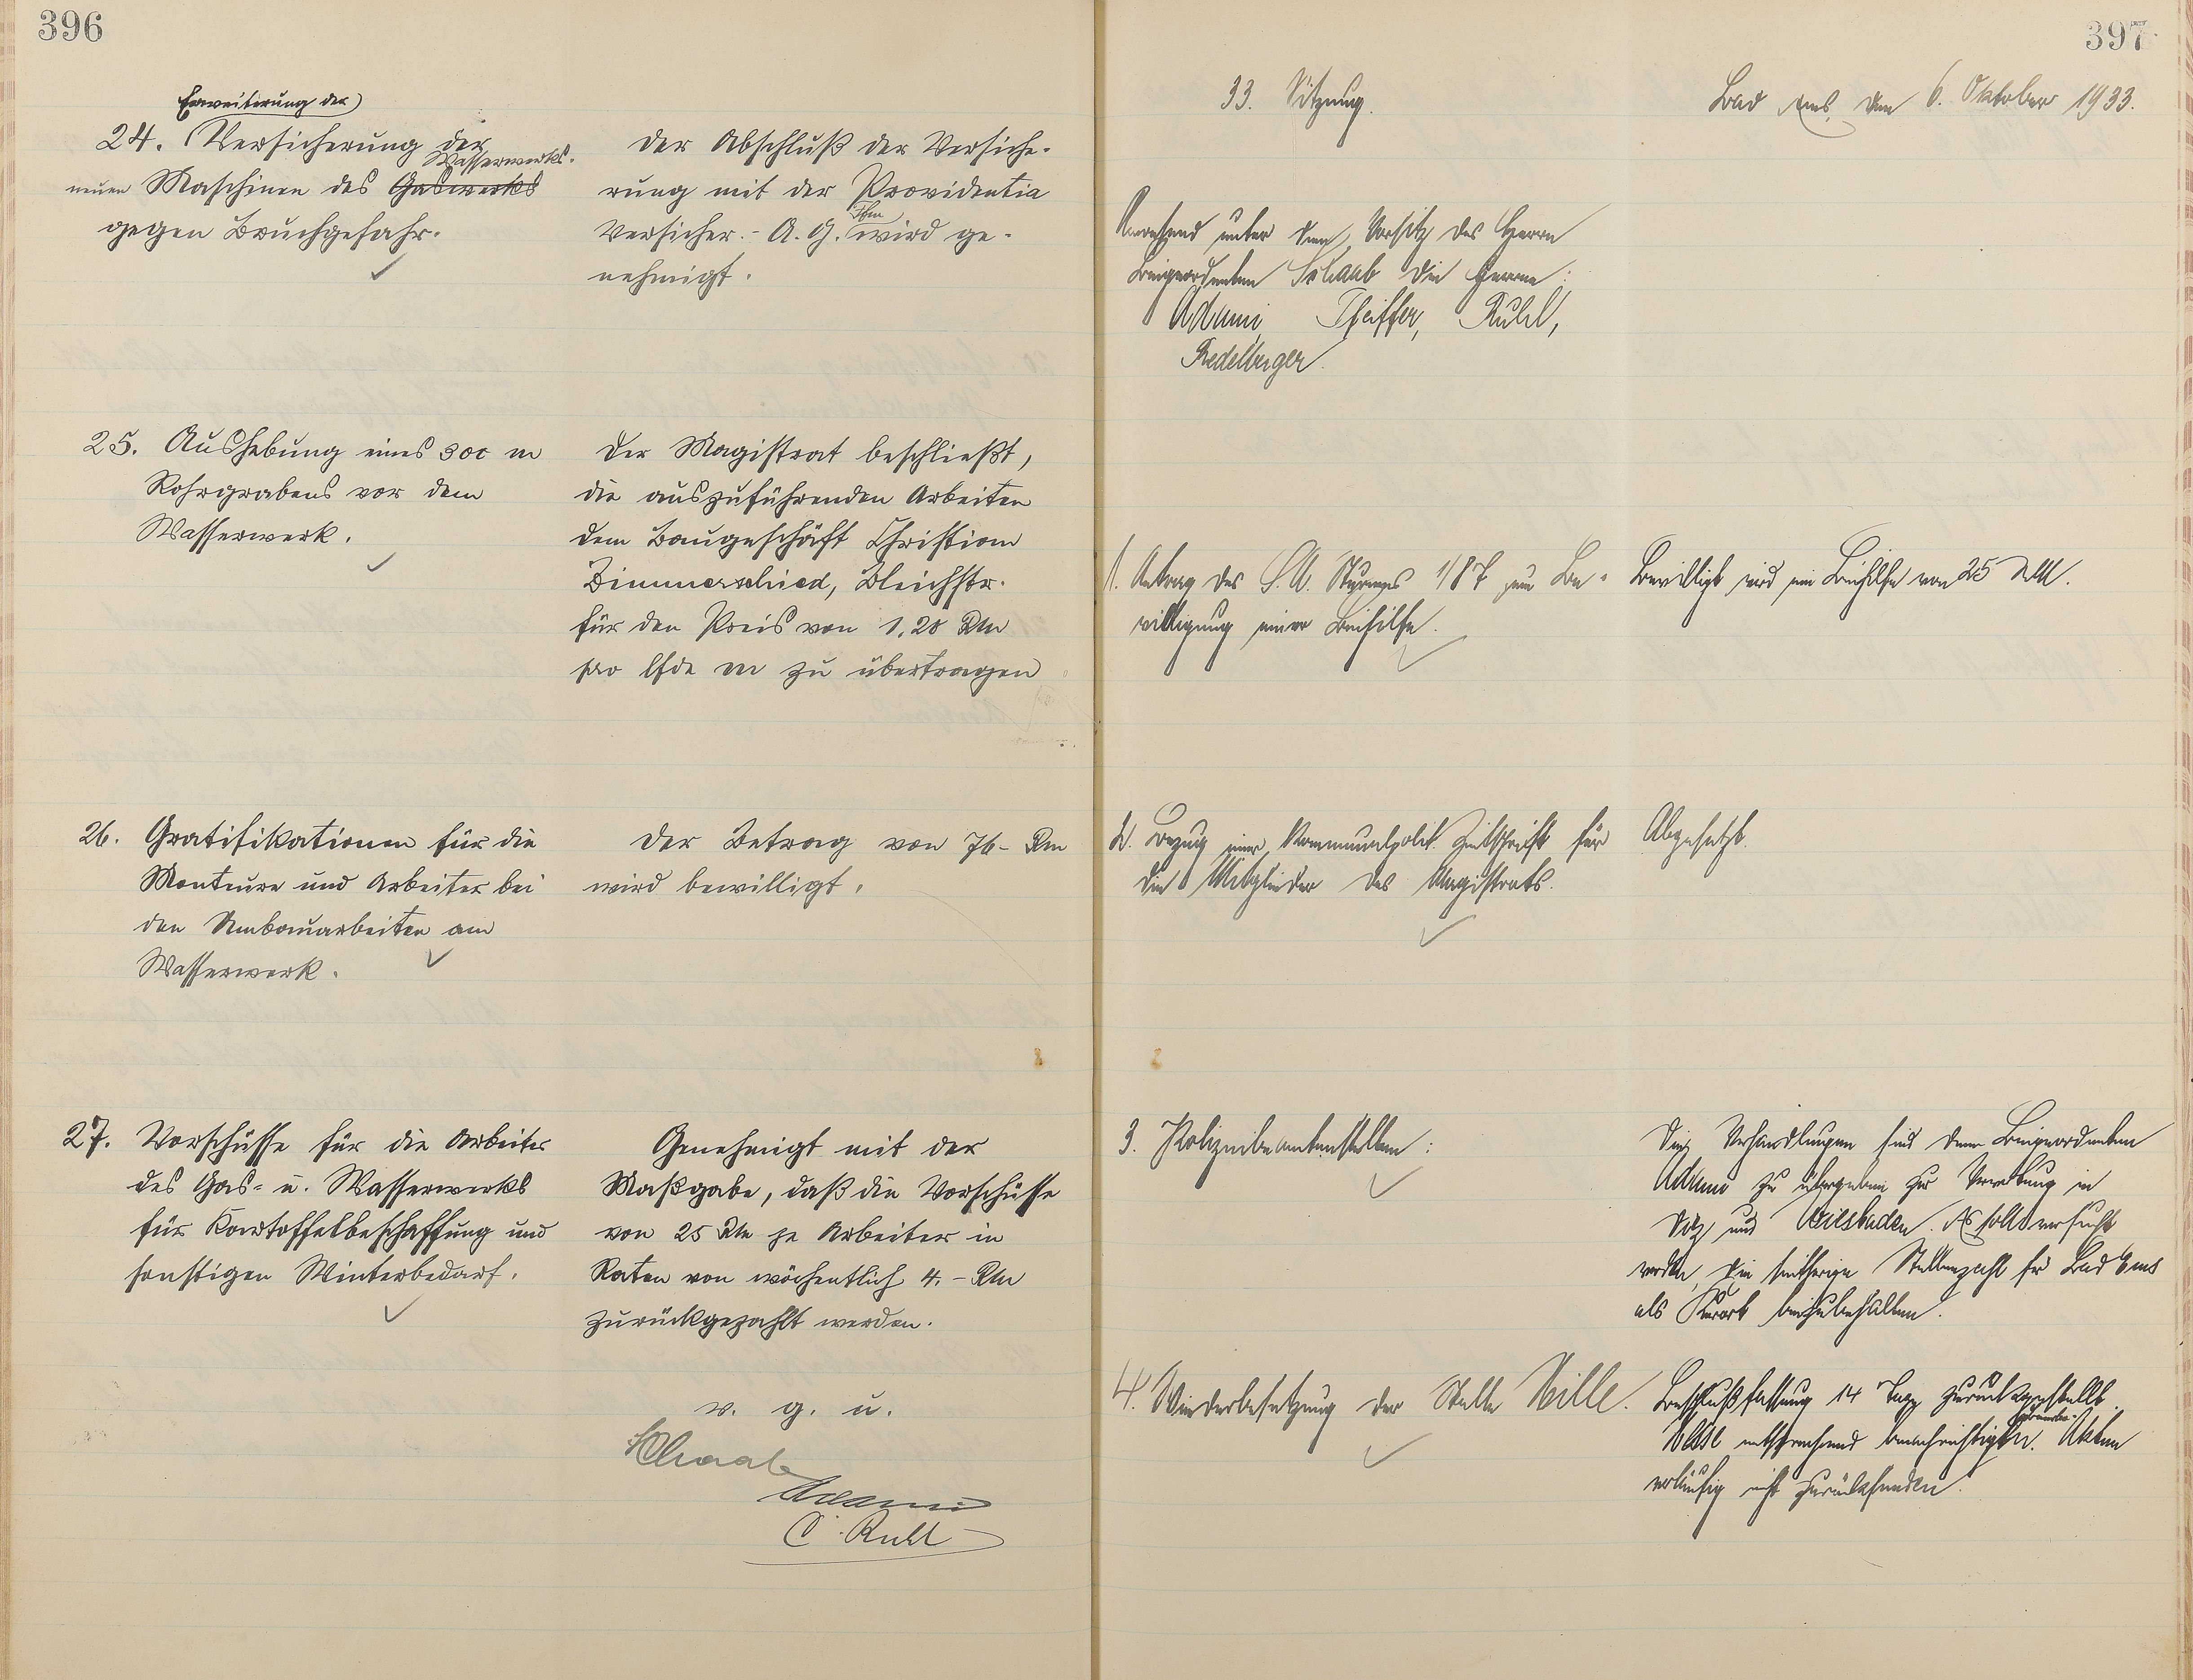 396
Erweiterung der
24. Versicherung der
Wasserwerks.
neuen Maschinen des Gaswerks
gegen Bruchgefahr.
Der Abschluß der Versiche-
rung mit der Providentia
Ffm
Versicher.- A. G. wird ge-
nehmigt.
25. Aushebung eines 300 m
Rohrgrabens vor dem
Wasserwerk.
Der Magistrat beschließt,
die auszuführenden Arbeiten
dem Baugeschäft Christian
Zimmerschied, Bleichstr.
für den Preis von 1,20 RM
pro lfde m zu übertragen
26. Gratifikationen für die
Monteure und Arbeiter bei
den Umbauarbeiten am
Wasserwerk.
Der Betrag von 76.- RM
wird bewilligt.
27. Vorschüsse für die Arbeiter
des Gas- u. Wasserwerks
für Kartoffelbeschaffung und
sonstigen Winterbedarf.
Genehmigt mit der
Maßgabe, daß die Vorschüsse
von 25 RM je Arbeiter in
Raten von wöchentlich 4.- RM
zurückgezahlt werden.
v. g. u.
Schaab
Adami
C. Ruhl
397
33. Sitzung.
Bad Ems, den 6. Oktober 1933.
Anwesend unter dem Vorsitz des Herrn
Beigeordneten Schaab die Herren:
Adami, Pfeiffer, Ruhl,
Redelberger.
1. Antrag des S.A. Sturmes 1/87 zum Be-
willigung einer Beihilfe.
Bewilligt wird ein Beihilfe von 25 RM.
2. Bezug einer Kommunalpolit. Zeitschrift für
die Mitglieder des Magistrats.
Abgesetzt.
3. Polizeibeamtenstellen:
Die Verhandlungen sind dem Beigeordneten
Adami zu übergeben zur Vertretung in
Diez und Wiesbaden. Es soll versucht
werden, die seitherige Stellenzahl für Bad Ems
als Kurort beizubehalten.
4. Wiederbesetzung der Stelle Nille.
Beschlußfassung 14 Tage zurückgestellt.
entsprechend benachrichtigen. Akten
vorläufig nicht zurücksenden.